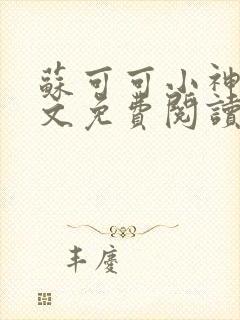 蘇可可小神
文免費閱讀
丰慶